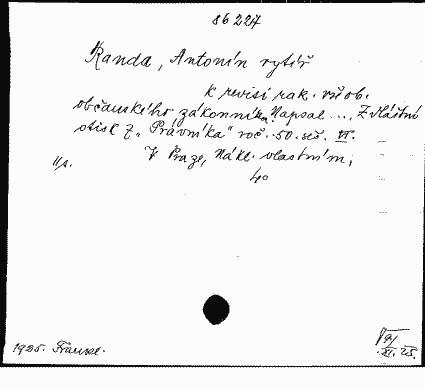 86227
Randa, Antonín rytíř
K revisi rak. všeob.
občanského zákonníka. Napsal ... Zvláštní
otisk z „Právníka" roč. 50. seš. VI.
V Praze, Nákl. vlastním,
4°
1925.
XI. 25.